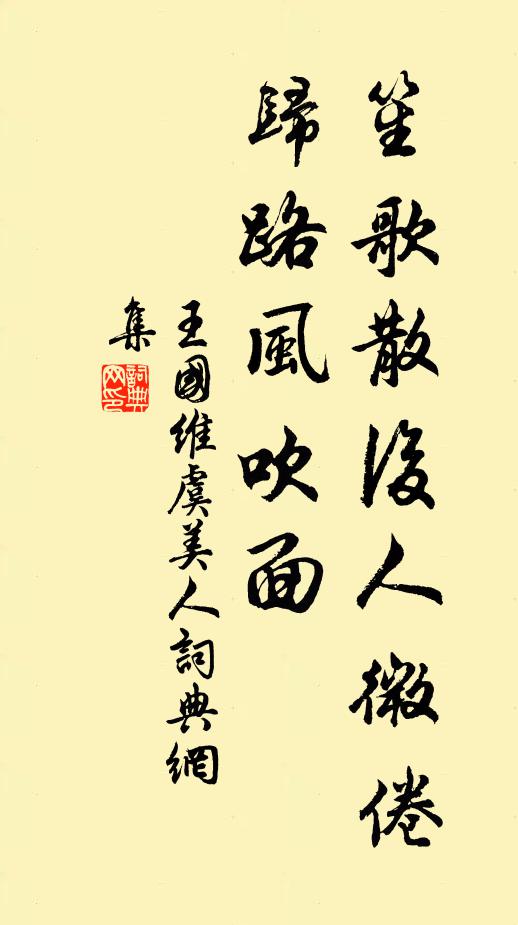 笙歌散後人微倦
歸路風吹面
王國維虞美人詞典網
集
詞典
网印